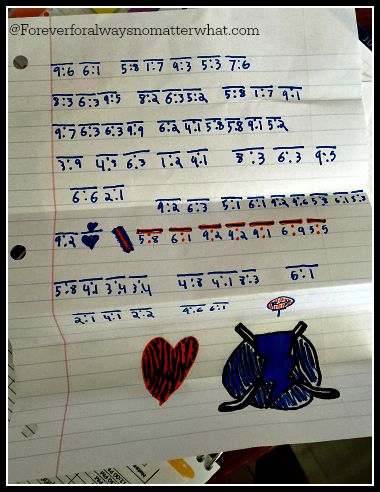 @Foreverforalwaysnomatterwhat.com
9:6 6:1 5:8 1:7 9:3 5:3 7:6
8:3 6:3 9:5 8:2 6:3 5:2 5:8 1:7 9:1
9:7 6:3 6:3 9:9 6:2 4:1 5:8 5:8 9:1 5:2
3:9 4:3 6:3 1:2 9:1 8:3 6:3 9:5
6:6 2:1
9:2 6:3 5:1 6:1 9:2 9:6 5:3 6:1 5:3
9:2 5:8 6:1 9:2 9:2 9:1 6:9 5:5
5:8 4:1 3:4 3:4 4:8 4:1 8:3 6:1
2:1 4:1 2:2 9:6 6:1